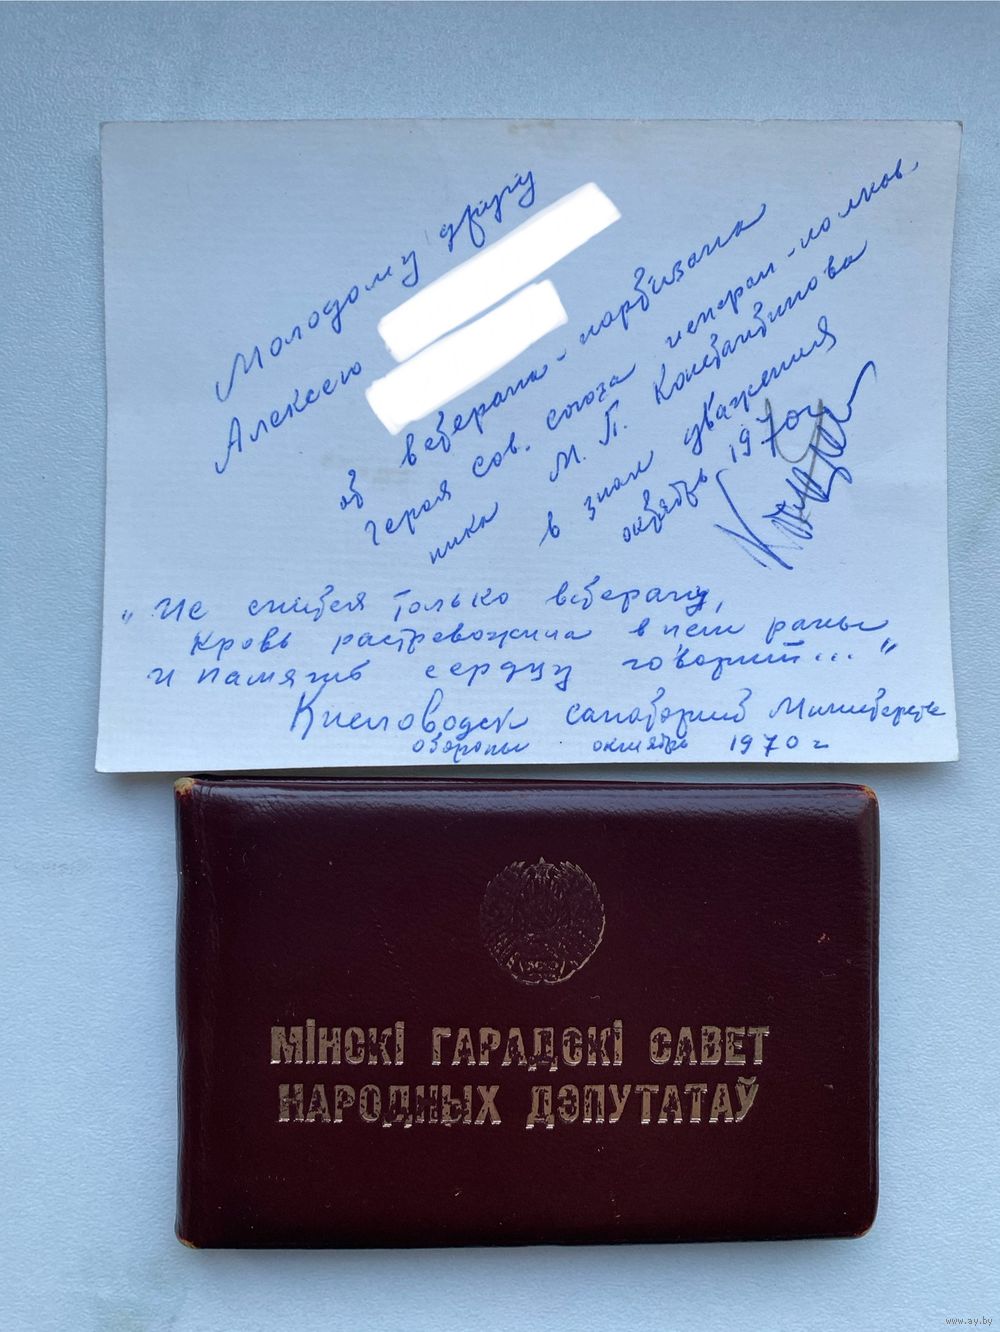 Молодому другу
Алексею
от ветерана-партизана
героя сов. союза генерал-полков-
ника М. П. Константинова
в знак уважения
октябрь 1970 г
„Не спится только ветерану,
Кровь растревожила в нем раны
и память сердцу говорит..."
Кисловодск санаторий Министерства
обороны октябрь 1970 г
МІНСКІ ГАРАДСКІ САВЕТ
НАРОДНЫХ ДЭПУТАТАЎ
www.ay.by